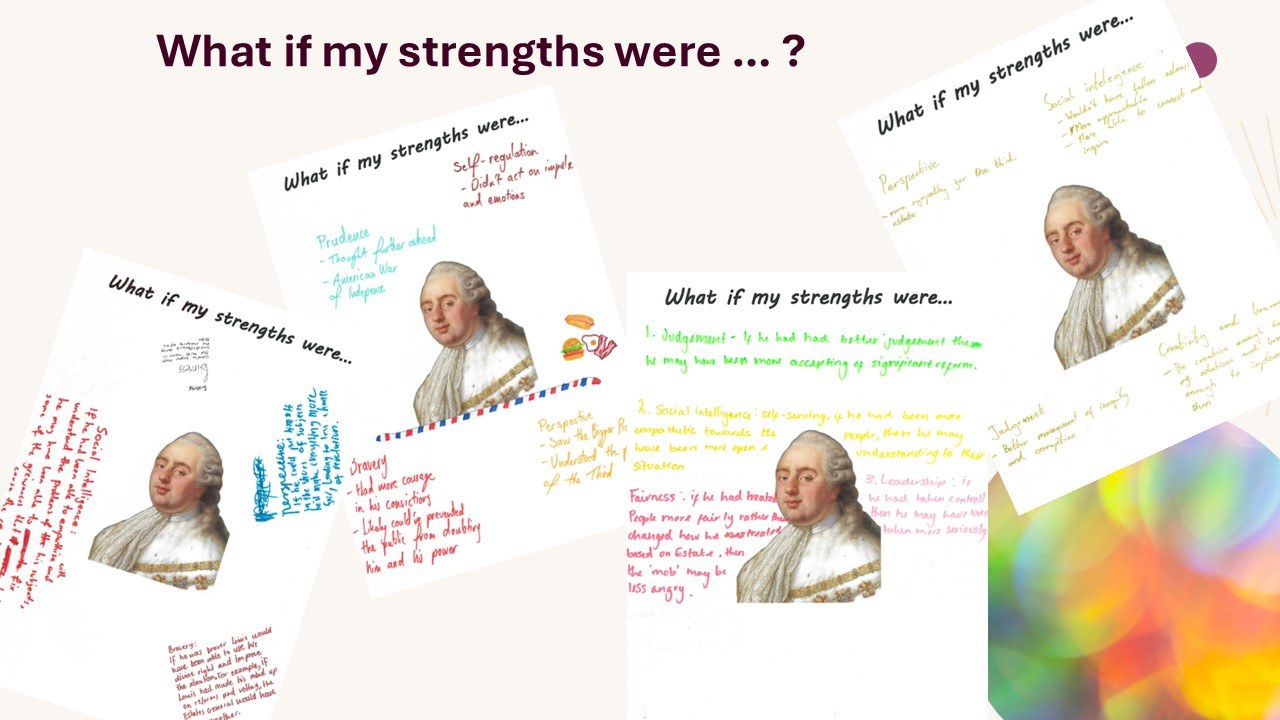 What if my strengths were ... ?
What if my strengths were...
Social Intelligence:
If he had been able to empathise and
understand the problems of his subjects,
he may have been able to
some of the
Fairness
Perspective:
If he could put himself
in the shoes of subjects
he'd make everything more
fair, leading to less chance
of rebellion.
Bravery:
If he was braver Louis would
have been able to use his
divine right and improve
the situation. For example, if
Louis had made his mind up
on reforms and voting, the
Estates General would have
What if my strengths were...
Self-regulation
- Didn't act on impuls
and emotions
Prudence
- Thought further ahead
- American War
of Indepence
Bravery
- Had more courage
in his convictions
- Likely could've prevented
the public from doubting
him and his power
Perspective
- Saw the Bigger Pi
- Understood the p
of the Third
What if my strengths were...
1. Judgement - if he had had better judgement then
he may have been more accepting of significant reform.
2. Social intelligence: self-serving, if he had been more
empathetic towards the people, then he may
have been more open & understanding to their
situation
3. Leadership: if
he had taken control
then he may have been
taken more seriously
Fairness: if he had treated
People more fairly rather than
changed how he treated
based on Estate, then
the 'mob' may be
less angry.
What if my strengths were...
Social intelegence:
- Wouldn't have fallen
- More approachable
- More able to connect and
inquire
Perspective
- more sympathy for the third
estate
Creativity and
- Be creative enough to
of solutions and
enough to
then
Judgement
Better management of inequity
and corruption